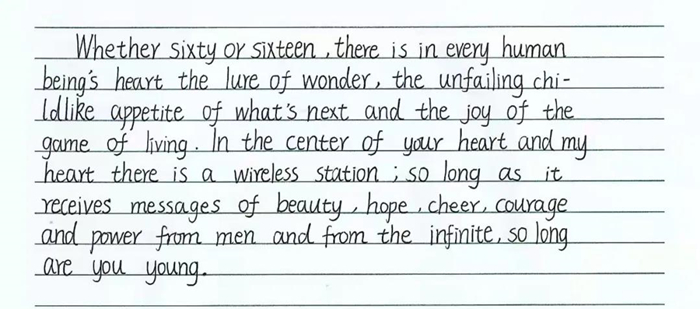 Whether sixty or sixteen, there is in every human
being's heart the lure of wonder, the unfailing chi-
ldlike appetite of what's next and the joy of the
game of living. In the center of your heart and my
heart there is a wireless station; so long as it
receives messages of beauty, hope, cheer, courage
and power from men and from the infinite, so long
are you young.